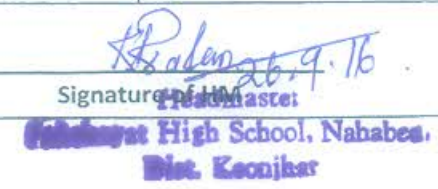 26.9.16
Signature of HM
Headmaster
High School, Nahabeda.
Dist. Keonjhar